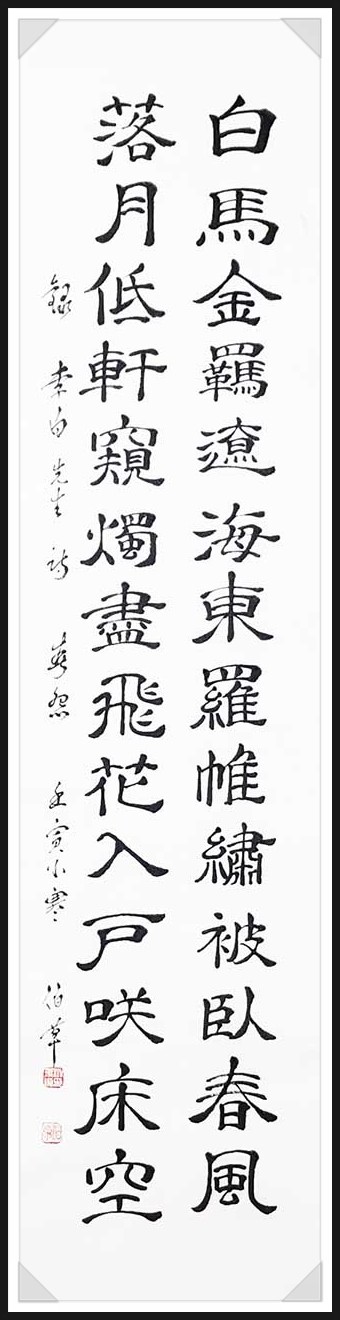 白馬金羈遼海東羅帷繡被臥春風
落月低軒窺燭盡飛花入戶咲床空
錄 李白先生 詩 春怨 壬寅小寒 伯草